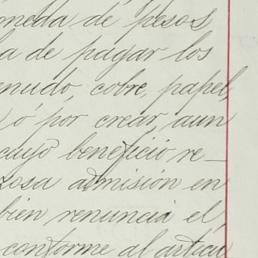 meda de pesos
a de pagar los
enudo, cobre, papel,
ó por crear, aun
cuyo beneficio re-
zosa admisión en
bien renuncia el
conforme al artícu